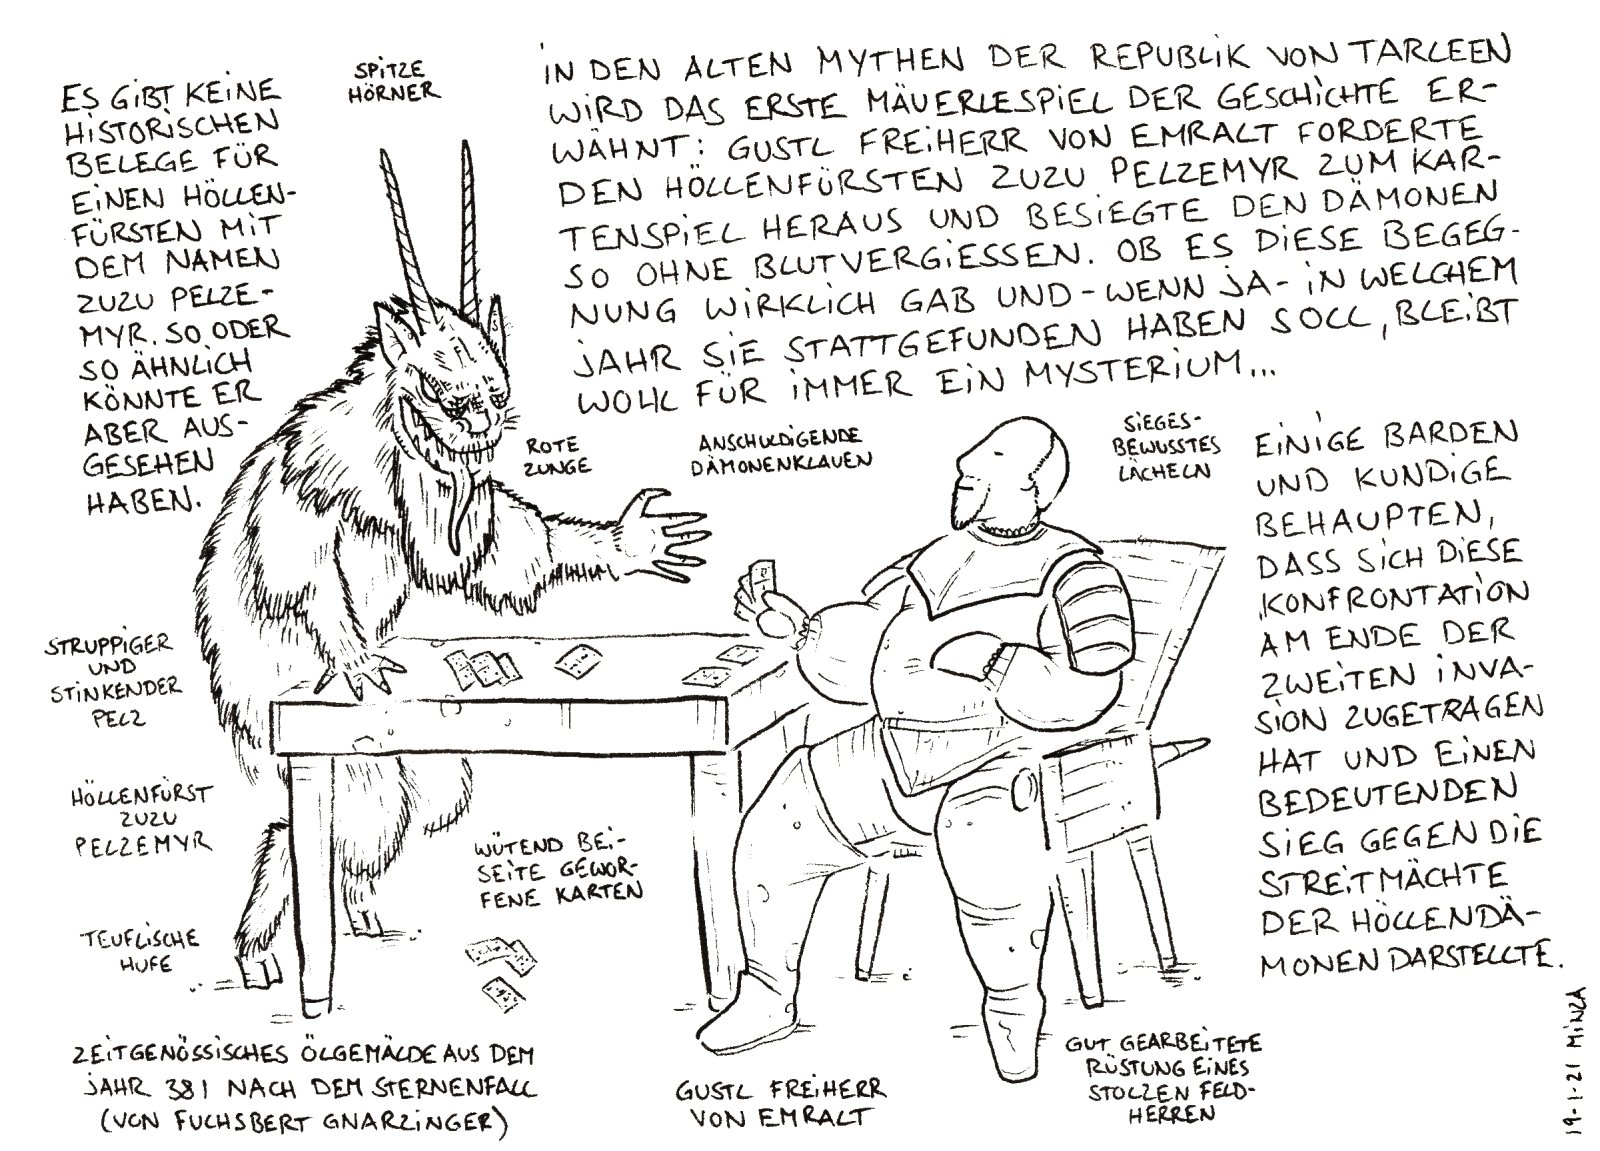 ES GIBT KEINE
HISTORISCHEN
BELEGE FÜR
EINEN HÖLLEN-
FÜRSTEN MIT
DEM NAMEN
ZUZU PELZE-
MYR. SO ODER
SO ÄHNLICH
KÖNNTE ER
ABER AUS-
GESEHEN
HABEN.
SPITZE
HÖRNER
IN DEN ALTEN MYTHEN DER REPUBLIK VON TARLEEN
WIRD DAS ERSTE MÄUERLESPIEL DER GESCHICHTE ER-
WÄHNT: GUSTL FREIHERR VON EMRALT FORDERTE
DEN HÖLLENFÜRSTEN ZUZU PELZEMYR ZUM KAR-
TENSPIEL HERAUS UND BESIEGTE DEN DÄMONEN
SO OHNE BLUTVERGIESSEN. OB ES DIESE BEGEG-
NUNG WIRKLICH GAB UND - WENN JA - IN WELCHEM
JAHR SIE STATTGEFUNDEN HABEN SOLL, BLEIBT
WOHL FÜR IMMER EIN MYSTERIUM...
ROTE
ZUNGE
ANSCHULDIGENDE
DÄMONENKLAUEN
SIEGES-
BEWUSSTES
LÄCHELN
EINIGE BARDEN
UND KUNDIGE
BEHAUPTEN,
DASS SICH DIESE
KONFRONTATION
AM ENDE DER
ZWEITEN INVA-
SION ZUGETRAGEN
HAT UND EINEN
BEDEUTENDEN
SIEG GEGEN DIE
STREITMÄCHTE
DER HÖLLENDÄ-
MONEN DARSTELLTE.
STRUPPIGER
UND
STINKENDER
PELZ
HÖLLENFÜRST
ZUZU
PELZEMYR
WÜTEND BEI-
SEITE GEWOR-
FENE KARTEN
TEUFLISCHE
HUFE
ZEITGENÖSSISCHES ÖLGEMÄLDE AUS DEM
JAHR 381 NACH DEM STERNENFALL
(VON FUCHSBERT GNARZINGER)
GUSTL FREIHERR
VON EMRALT
GUT GEARBEITETE
RÜSTUNG EINES
STOLZEN FELD-
HERREN
19-1-21 MINZA